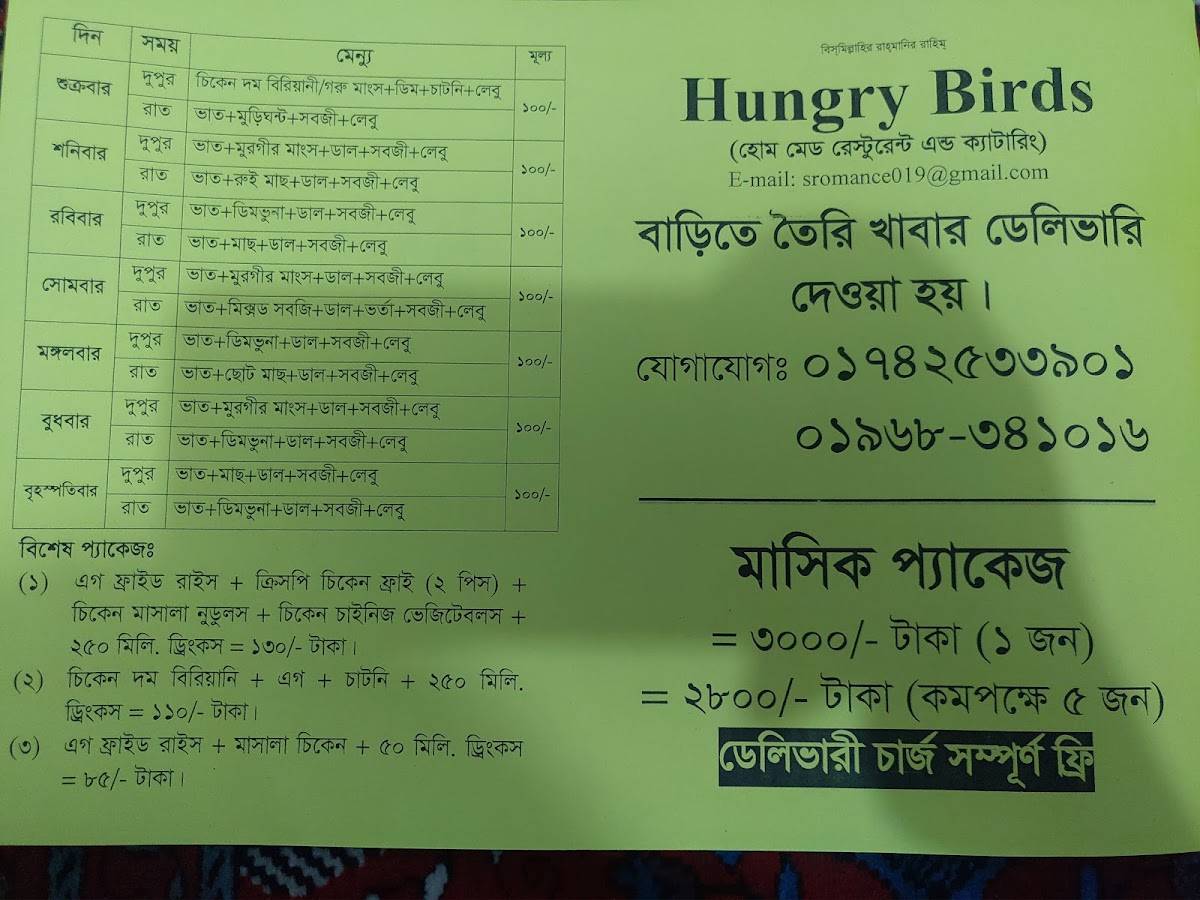 দিন সময় মেন্যু মূল্য
শুক্রবার দুপুর চিকেন দম বিরিয়ানী/গরু মাংস+ডিম+চাটনি+লেবু ১০০/-
রাত ভাত+মুড়িঘন্ট+সবজী+লেবু
শনিবার দুপুর ভাত+মুরগীর মাংস+ডাল+সবজী+লেবু ১০০/-
রাত ভাত+রুই মাছ+ডাল+সবজী+লেবু
রবিবার দুপুর ভাত+ডিমভুনা+ডাল+সবজী+লেবু ১০০/-
রাত ভাত+মাছ+ডাল+সবজী+লেবু
সোমবার দুপুর ভাত+মুরগীর মাংস+ডাল+সবজী+লেবু ১০০/-
রাত ভাত+মিক্সড সবজি+ডাল+ভর্তা+সবজী+লেবু
মঙ্গলবার দুপুর ভাত+ডিমভুনা+ডাল+সবজী+লেবু ১০০/-
রাত ভাত+ছোট মাছ+ডাল+সবজী+লেবু
বুধবার দুপুর ভাত+মুরগীর মাংস+ডাল+সবজী+লেবু ১০০/-
রাত ভাত+ডিমভুনা+ডাল+সবজী+লেবু
বৃহস্পতিবার দুপুর ভাত+মাছ+ডাল+সবজী+লেবু ১০০/-
রাত ভাত+ডিমভুনা+ডাল+সবজী+লেবু
বিশেষ প্যাকেজঃ
(১) এগ ফ্রাইড রাইস + ক্রিসপি চিকেন ফ্রাই (২ পিস) +
চিকেন মাসালা নুডুলস + চিকেন চাইনিজ ভেজিটেবলস +
২৫০ মিলি. ড্রিংকস = ১৩০/- টাকা।
(২) চিকেন দম বিরিয়ানি + এগ + চাটনি + ২৫০ মিলি.
ড্রিংকস = ১১০/- টাকা।
(৩) এগ ফ্রাইড রাইস + মাসালা চিকেন + ৫০ মিলি. ড্রিংকস
= ৮৫/- টাকা।
বিস্‌মিল্লাহির রাহ্‌মানির রাহিম্‌
Hungry Birds
(হোম মেড রেস্টুরেন্ট এন্ড ক্যাটারিং)
E-mail: sromance019@gmail.com
বাড়িতে তৈরি খাবার ডেলিভারি
দেওয়া হয়।
যোগাযোগঃ ০১৭৪২৫৩৩৯০১
০১৯৬৮-৩৪১০১৬
মাসিক প্যাকেজ
= ৩০০০/- টাকা (১ জন)
= ২৮০০/- টাকা (কমপক্ষে ৫ জন)
ডেলিভারী চার্জ সম্পূর্ণ ফ্রি